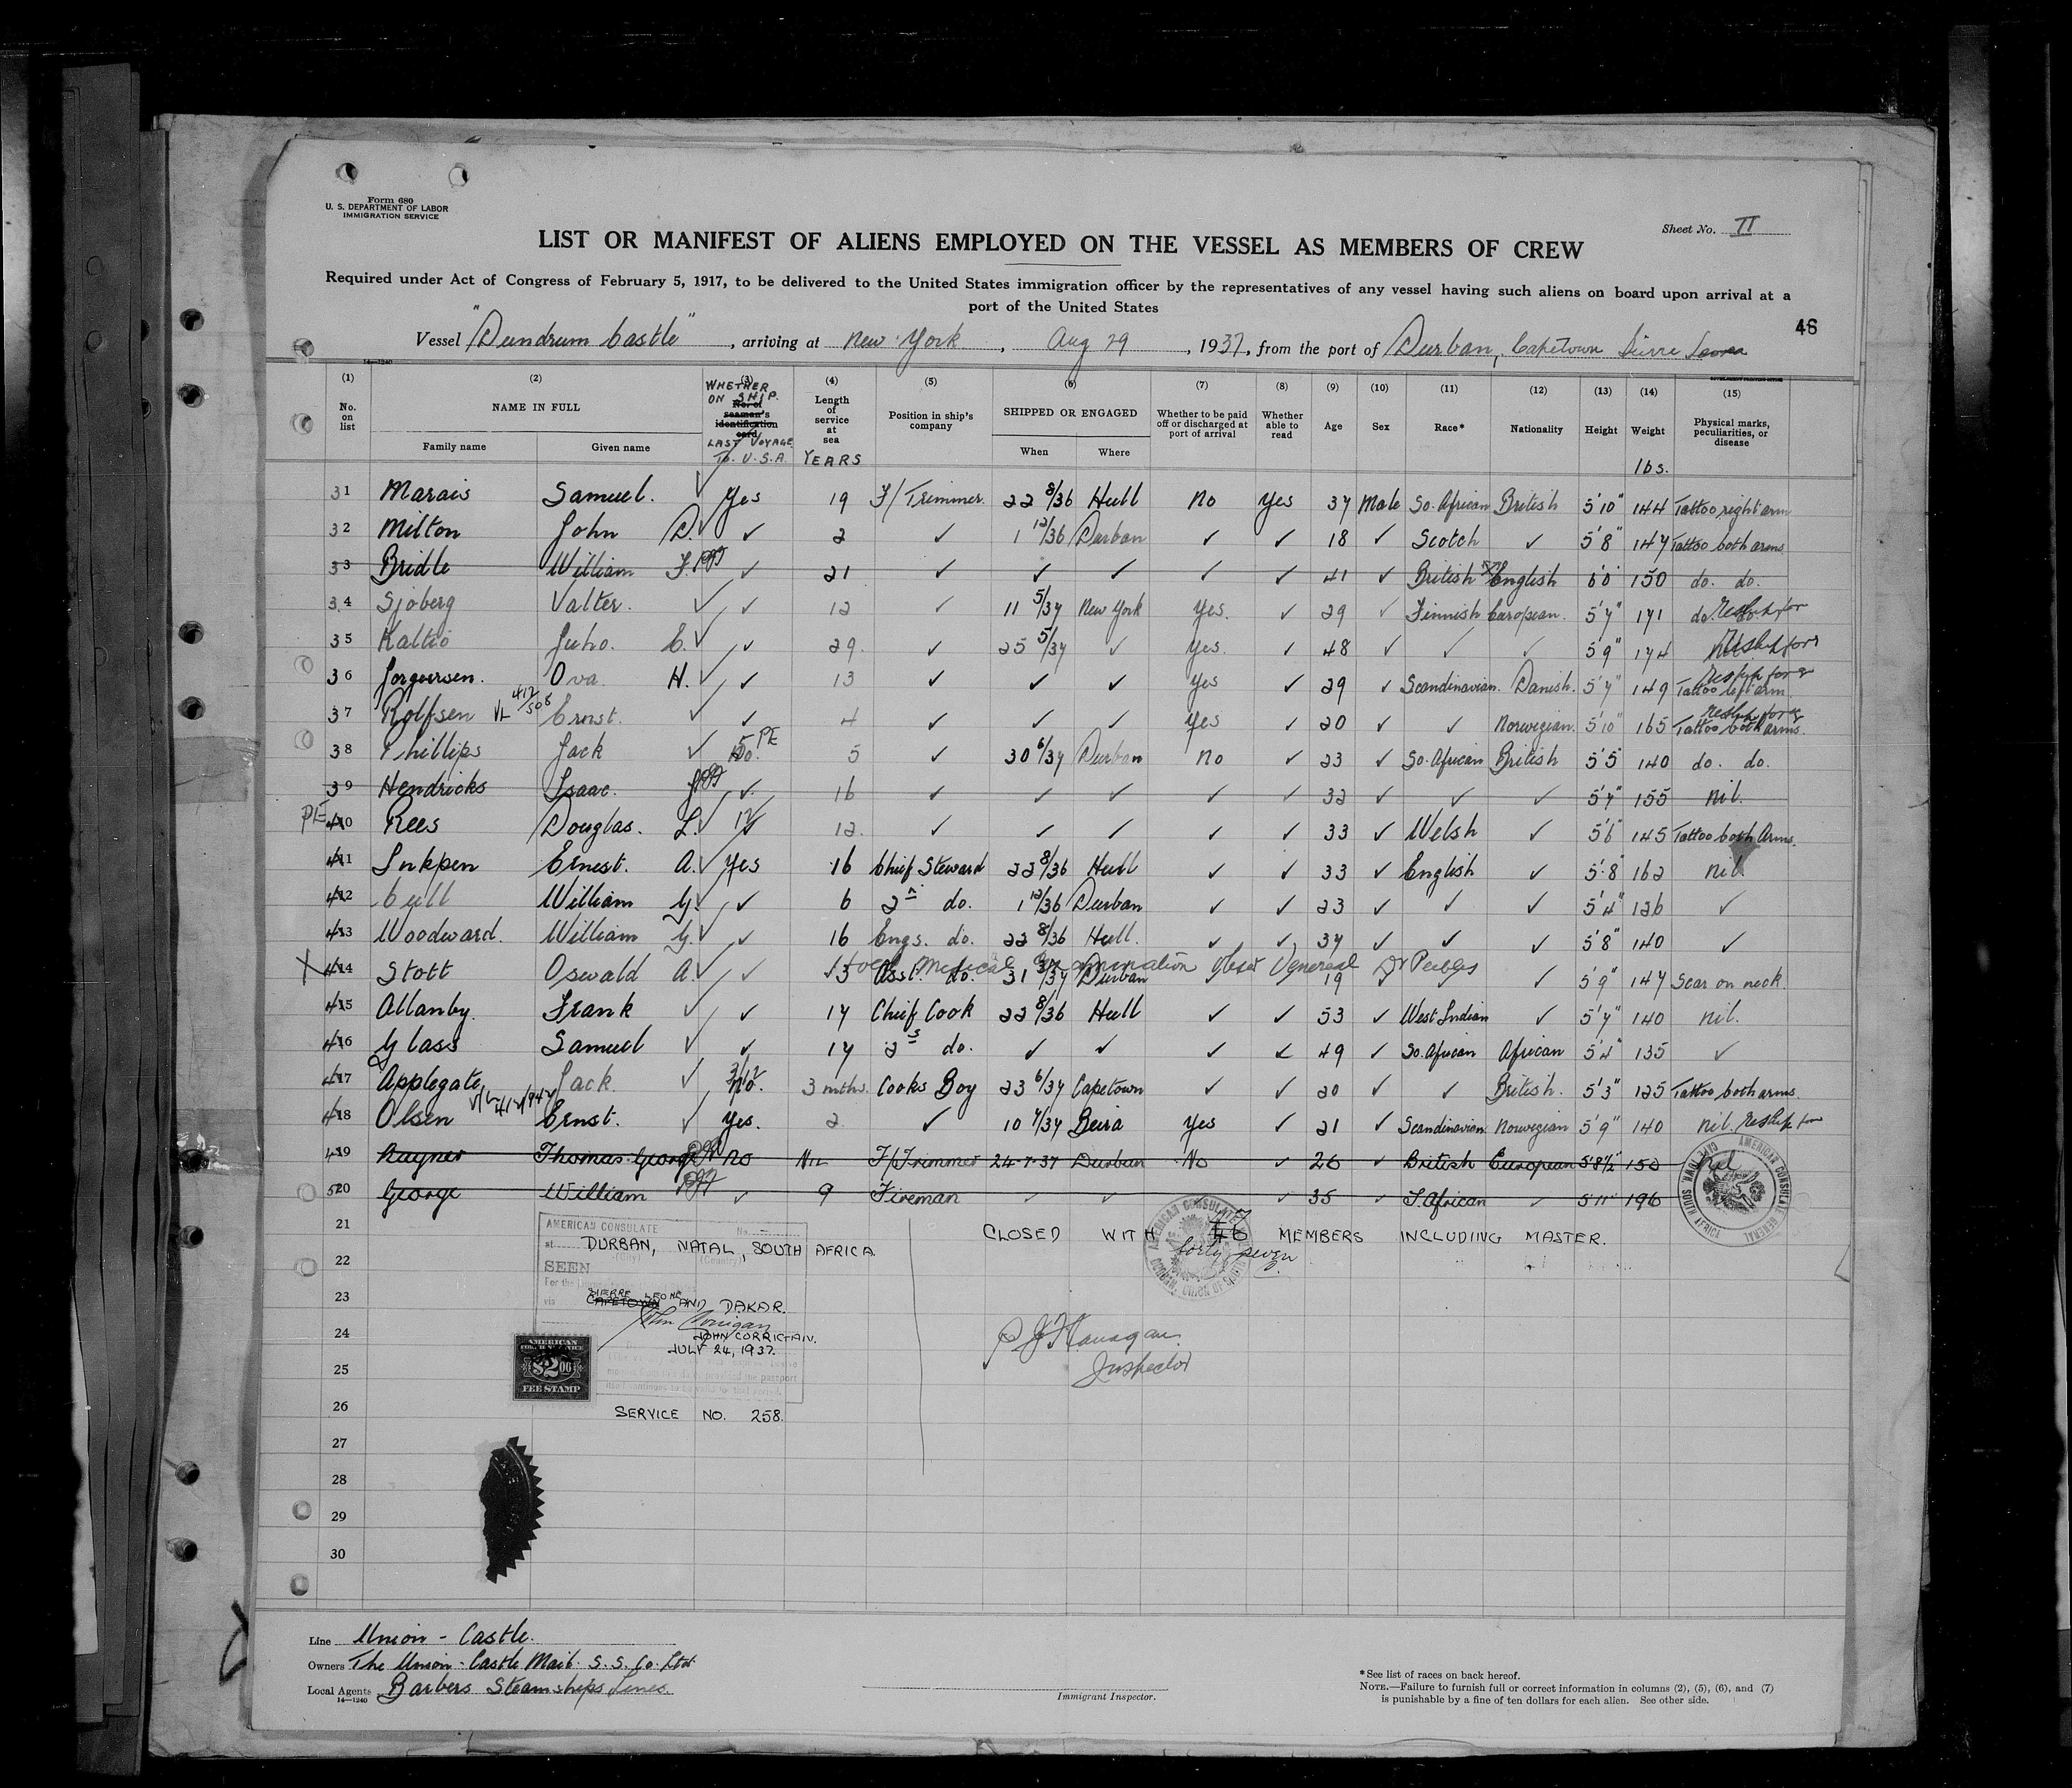 Form 680
U. S. DEPARTMENT OF LABOR
IMMIGRATION SERVICE
Sheet No. II
LIST OR MANIFEST OF ALIENS EMPLOYED ON THE VESSEL AS MEMBERS OF CREW
Required under Act of Congress of February 5, 1917, to be delivered to the United States immigration officer by the representatives of any vessel having such aliens on board upon arrival at a
port of the United States
46
Vessel "Dundrum Castle", arriving at New York, Aug 29, 1937, from the port of Durban, Capetown Sierre Leone
14—1240
(1) (2) (3) (4) (5) (6) (7) (8) (9) (10) (11) (12) (13) (14) (15)
No. on list
NAME IN FULL
Family name Given name
WHETHER ON SHIP LAST VOYAGE TO U.S.A.
No. of seaman's identification card
Length of service at sea YEARS
Position in ship's company
SHIPPED OR ENGAGED
When Where
Whether to be paid off or discharged at port of arrival
Whether able to read
Age Sex Race* Nationality Height Weight lbs.
Physical marks, peculiarities, or disease
31 Marais Samuel. ✓ Yes 19 F/Trimmer. 22 8/36 Hull No Yes 37 Male So. African British 5'10" 144 Tattoo right arm
32 Milton John D. ✓ ✓ 2 ✓ 1 12/36 Durban ✓ ✓ 18 ✓ Scotch ✓ 5'8" 147 Tattoo both arms.
33 Bridle William F. ✓ 21 ✓ ✓ ✓ ✓ ✓ 41 ✓ British English 6'0 150 do. do.
34 Sjoberg Valter. ✓ ✓ 12 ✓ 11 5/37 New York Yes. ✓ 29 ✓ Finnish European. 5'7" 171 do. do. Reship for
35 Kaltio Juho. E. ✓ ✓ 29. ✓ 25 5/37 ✓ Yes. ✓ 48 ✓ ✓ ✓ 5'9" 174 Reship for
36 Jorgensen. Ova H. ✓ ✓ 13 ✓ ✓ ✓ Yes ✓ 29 ✓ Scandinavian. Danish. 5'7" 149 Tattoo left arm. Reship for
37 Rolfsen VL 412/506 Ernst. ✓ ✓ 4 ✓ ✓ ✓ Yes ✓ 20 ✓ ✓ Norwegian. 5'10" 165 Tattoo both arms. Reship for
38 Phillips Jack ✓ No. 5 PE 5 ✓ 30 6/37 Durban No ✓ 23 ✓ So. African British 5'5" 140 do. do.
39 Hendricks Isaac. ✓ 16 ✓ ✓ ✓ ✓ ✓ 32 ✓ ✓ ✓ 5'7" 155 nil.
PE 40 Rees Douglas. L. ✓ 12 ✓ 12. ✓ ✓ ✓ ✓ ✓ 33 ✓ Welsh ✓ 5'6" 145 Tattoo both Arms.
41 Inkpen Ernest. A. ✓ Yes 16 Chief Steward 22 8/36 Hull ✓ ✓ 33 ✓ English ✓ 5'8" 162 nil
42 Cull William G. ✓ ✓ 6 2n do. 1 12/36 Durban ✓ ✓ 23 ✓ ✓ ✓ 5'4" 126 ✓
43 Woodward. William G. ✓ ✓ 16 Engs. do. 22 8/36 Hull. ✓ ✓ 37 ✓ ✓ ✓ 5'8" 140 ✓
Medical Examination Venereal Dr Peebles
X 44 Stott Oswald A. ✓ ✓ Asst. do. 31 3/37 Durban 19 ✓ 5'9" 147 Scar on neck.
45 Allanby. Frank ✓ ✓ 17 Chief Cook 22 8/36 Hull ✓ ✓ 53 ✓ West Indian ✓ 5'7" 140 nil.
46 Glass Samuel ✓ ✓ 17 2s do. ✓ ✓ ✓ ✓ 49 ✓ So. African African 5'4" 135 ✓
47 Applegate Jack. ✓ No. 3 mths. Cooks Boy 23 6/37 Capetown ✓ ✓ 20 ✓ ✓ British. 5'3" 125 Tattoo both arms.
48 Olsen Ernst. ✓ Yes. 2. ✓ 10 7/37 Beira Yes ✓ 21 ✓ Scandinavian Norwegian 5'9" 140 nil. Reship for
49 Rayner Thomas George No Nil F/Trimmer 24-7-37 Durban No ✓ 26 ✓ British European 5'8½" 150 nil
50 George William ✓ 9 Fireman ✓ ✓ ✓ 35 ✓ S. African ✓ 5'11" 196
21
22
23
24
25
26
27
28
29
30
CLOSED WITH 46 47 MEMBERS INCLUDING MASTER.
forty seven
AMERICAN CONSULATE No.
at DURBAN, NATAL, SOUTH AFRICA.
(City) (Country)
SEEN
For the
via CAPETOWN SIERRE LEONE AND DAKAR.
John Corrigan
JOHN CORRIGAN.
JULY 24, 1937.
AMERICAN
$2.00
FEE STAMP
SERVICE NO. 258.
P J Flanagan
Inspector
AMERICAN CONSULATE GENERAL CAPE TOWN, SOUTH AFRICA
Line Union - Castle.
Owners The Union-Castle Mail S. S. Co. Ltd.
Local Agents Barbers Steamships Lines.
14—1240
Immigrant Inspector.
*See list of races on back hereof.
NOTE.—Failure to furnish full or correct information in columns (2), (5), (6), and (7)
is punishable by a fine of ten dollars for each alien. See other side.